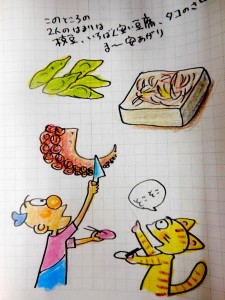 このところの
2人のはまりは
枝豆、いちばん安い豆腐、タコのさし
ま〜安あがり
そこそこ